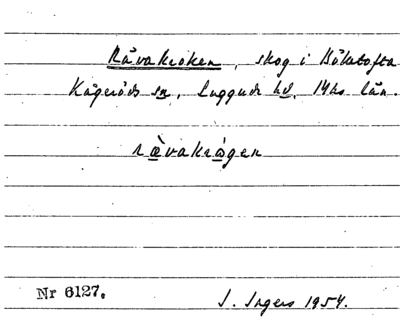 Råvakroken, skog i Bökatofta
Kågeröds sn, Luggude hd, Mhs län.
rævakrågen
Nr 6127. I. Ingers 1954.